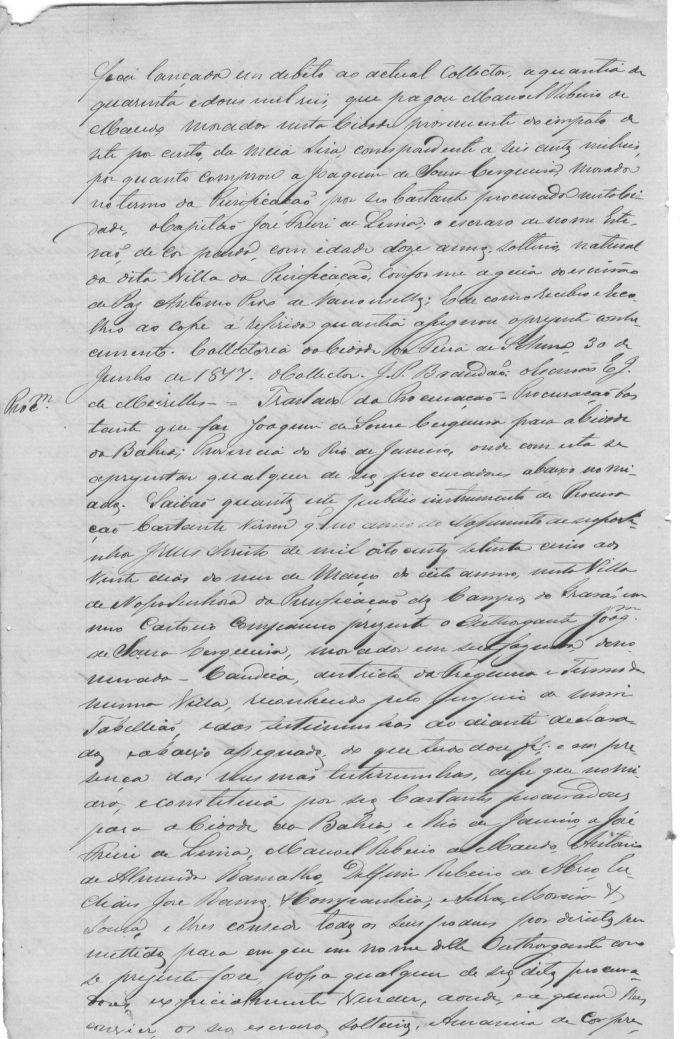 fica lançada em debito ao actual Collector, a quantia de
quarenta e dous mil reis, que pagou Manoel Ribeiro de
Macedo morador nesta Cidade proveniente do imposto de
sete por cento, da meia Siza, correspondente a seis centos mil reis,
por quanto comprou a Joaquim de Souza Cerqueira, morador
no termo da Purificação, por seo bastante procurador nesta Ci-
dade, o Capitão José Freire de Lima, o escravo de nome Este-
vão, de Cor parda, com idade doze annos, solteiro, natural
da dita Villa da Purificação, conforme a guia do escrivão
de Paz Antonio de Vasconcellos; E de como recebeo e reco-
lheo ao cofre a referida quantia assignou o presente conhe-
cimento. Collectoria da Cidade da Feira de 30 de
Junho de 1877. O Collector. J. P. Brandão. O escrivão E. J.
de Meirelles = Traslado da Procuração = Procuração bas
Procm.
tante que faz Joaquim de Souza Cerqueira para a Cidade
da Bahia; Provincia do Rio de Janeiro, onde com esta se
apresentar qualquer de seos procuradores abaixo nomi-
ados. Saibão quantos este publico instrumento de Procura
ção bastante virem q. no anno do Nascimento de Nosso Se-
nhor Jesus Christo de mil oito centos setenta cinco aos
Vinte dias do mez de Março do dito anno, nesta Villa
de Nossa Senhora da Purificação dos Campos do Irará, em
meo Cartorio compareceo prezente o Outhorgante Joaqm.
de Souza Cerqueira, morador em sua fazenda deno-
minada - Candeia, districto da Freguezia e Termo da
mesma Villa, reconhecido pelo proprio de mim
Tabellião, e das testemunhas ao diante declara-
das e abaixo assignadas, do que tudo dou fé; e em pre
sença das mesmas testemunhas, disse que nomi-
ava, e constituia por seos bastantes procuradores
para a Cidade da Bahia, e Rio de Janeiro a José
Freire de Lima, Manoel Ribeiro de Macedo, Antonio
de Almeida Ramalho, Delfim Ribeiro de Abreo
José Ramos, & Companhia, e Silva, Moreira &
Souza, e lhes concede todos os seus poderes por direito per
mettidos para em que em nome delle Outhorgante como
se prezente fora possa qualquer de seos ditos procura-
dores, expecialmente Vender, aonde, e a quem lhes
convier, os seos escravos, solteiros, de Cor pre-